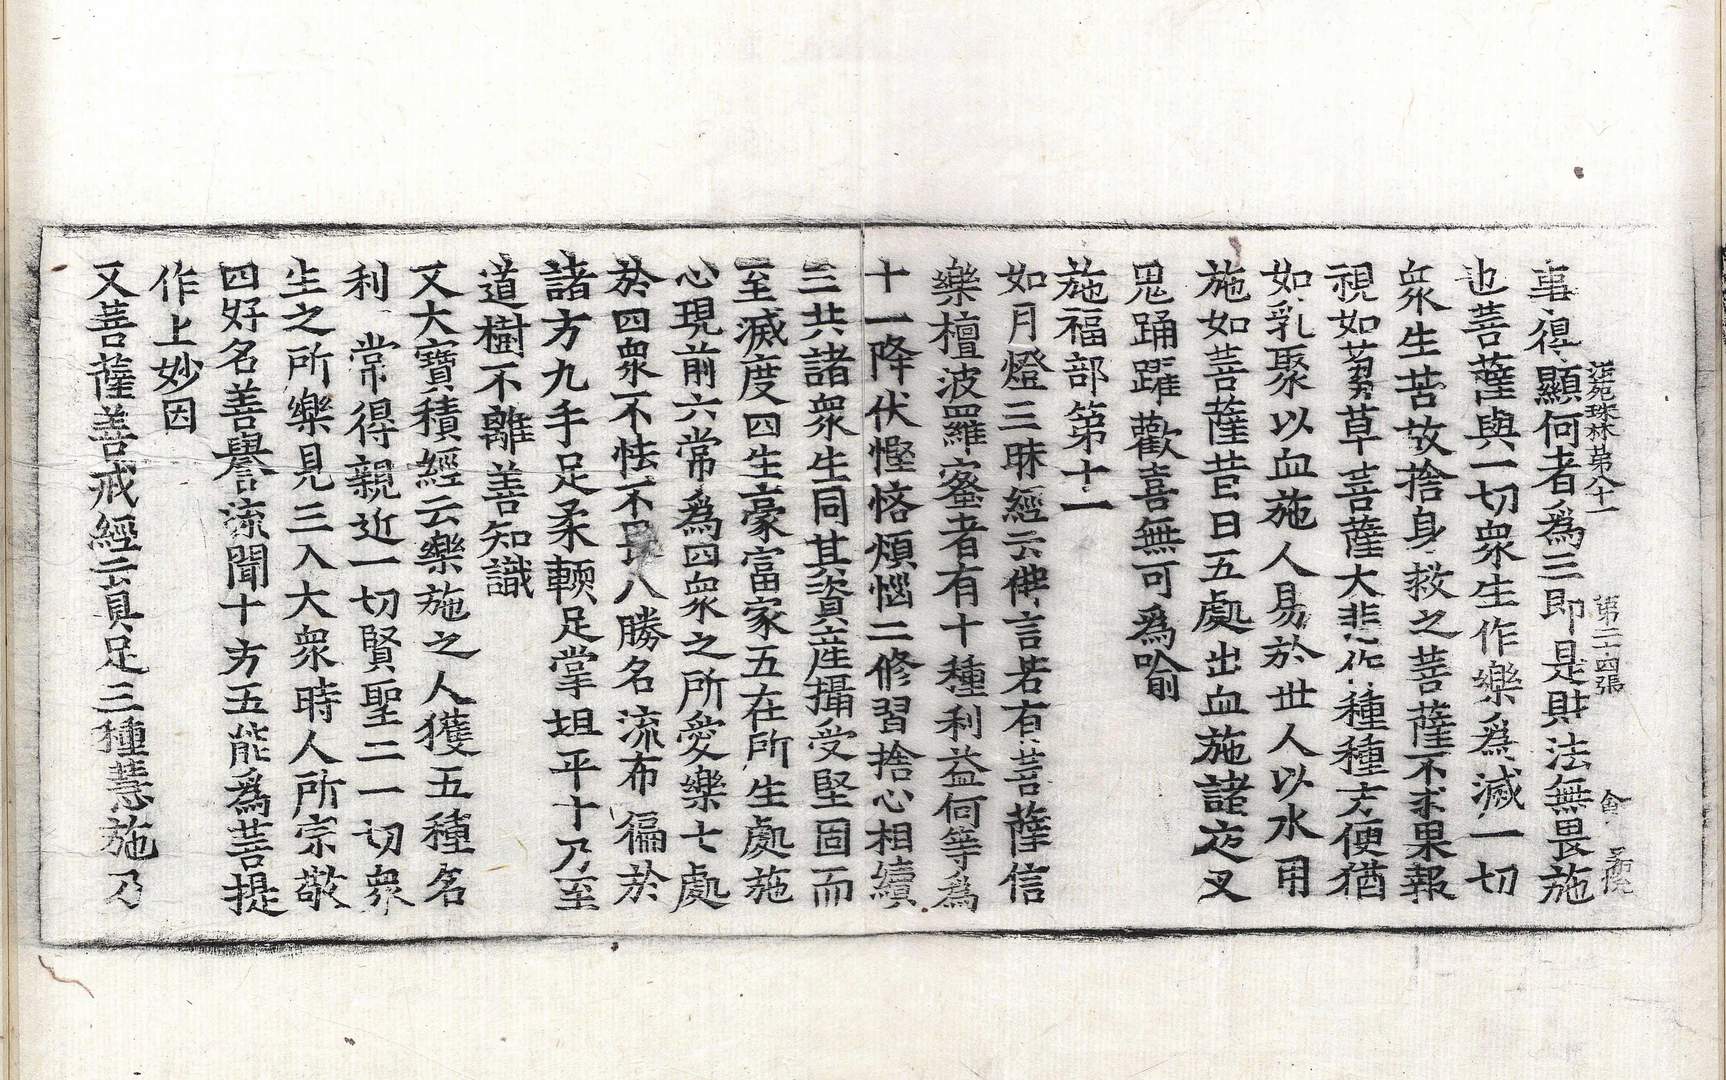 法苑珠林苐八十一 苐二十四張
事得顯何者爲三即是財法無畏施
也菩薩與一切衆生作樂爲滅一切
衆生苦故捨身救之菩薩不求果報
視如芻草菩薩大悲作種種方便猶
如乳聚以血施人易於世人以水用
施如菩薩昔日五處出血施諸夜叉
鬼踊躍歡喜無可爲喻
施福部苐十一
如月燈三昧經云佛言若有菩薩信
樂檀波羅蜜者有十種利益何等爲
十一降伏慳悋煩惱二修習捨心相續
三共諸衆生同其資産攝受堅固而
至滅度四生豪富家五在所生處施
心現前六常爲四衆之所愛樂七處
於四衆不怯不畏八勝名流布徧於
諸方九手足柔輭足掌坦平十乃至
道樹不離善知識
又大寶積經云樂施之人獲五種名
利一常得親近一切賢聖二一切衆
生之所樂見三入大衆時人所宗敬
四好名善譽流聞十方五能爲菩提
作上妙因
又菩薩善戒經云具足三種慧施乃